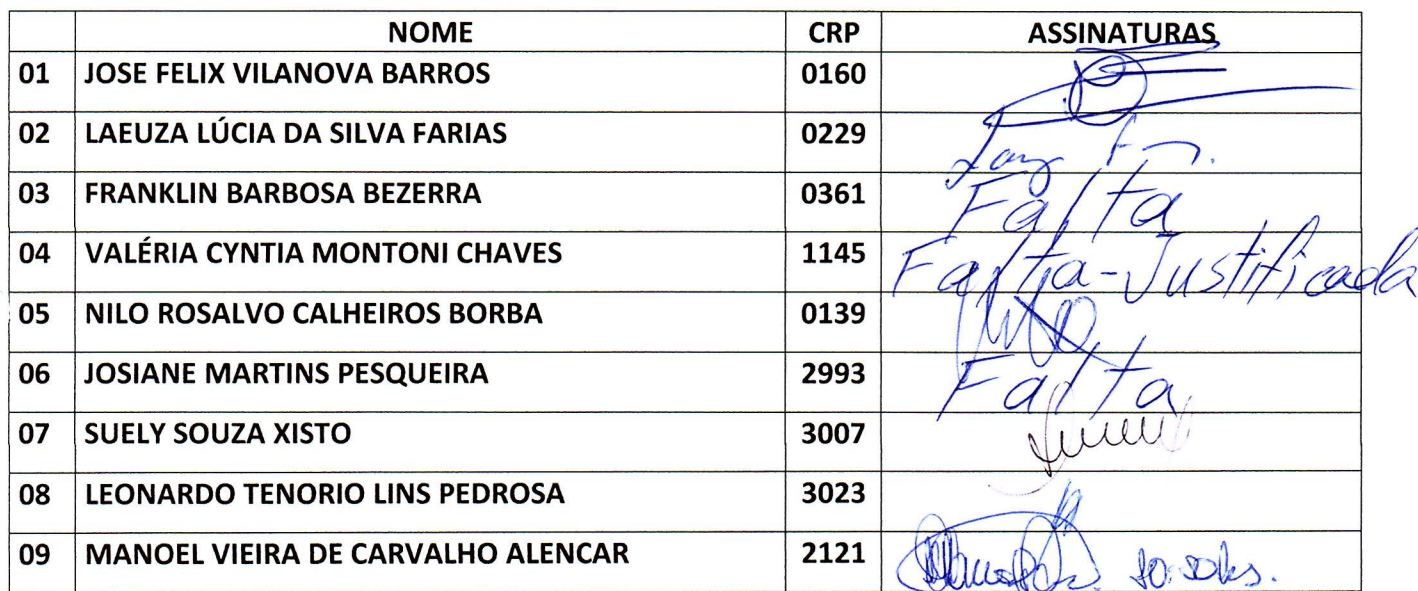 NOME CRP ASSINATURAS
01 JOSE FELIX VILANOVA BARROS 0160
02 LAEUZA LÚCIA DA SILVA FARIAS 0229
03 FRANKLIN BARBOSA BEZERRA 0361 Falta
04 VALÉRIA CYNTIA MONTONI CHAVES 1145 Falta-Justificada
05 NILO ROSALVO CALHEIROS BORBA 0139
06 JOSIANE MARTINS PESQUEIRA 2993 Falta
07 SUELY SOUZA XISTO 3007
08 LEONARDO TENORIO LINS PEDROSA 3023
09 MANOEL VIEIRA DE CARVALHO ALENCAR 2121